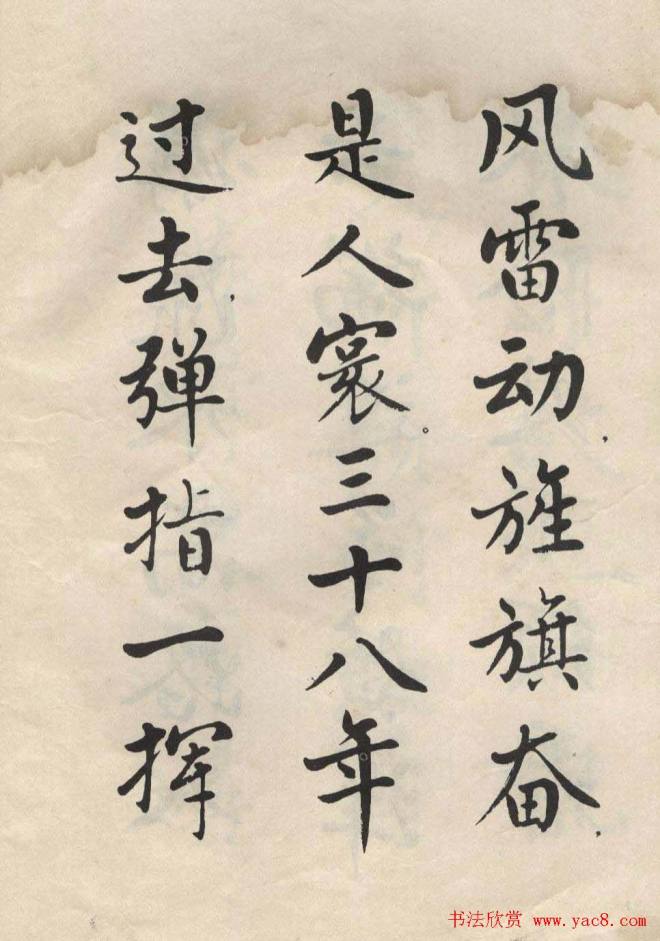 风雷动，旌旗奋，
是人寰。三十八年
过去，弹指一挥
书法欣赏 www.yac8.com